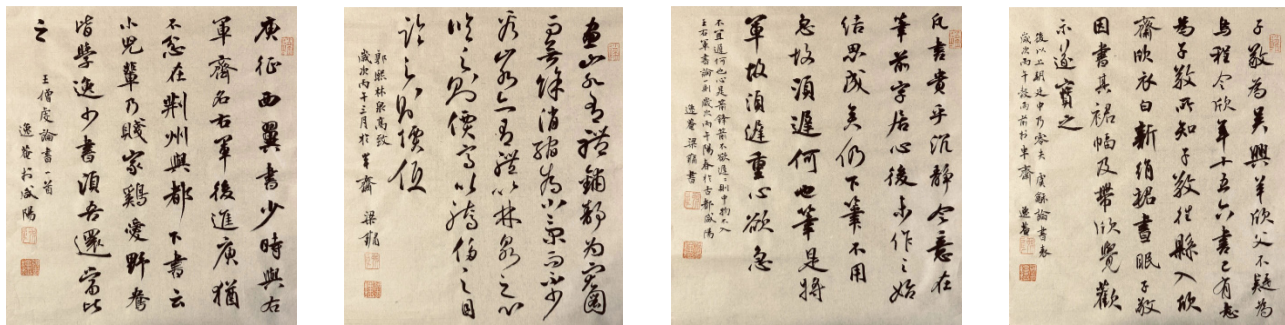 庾征西翼書少時與右
軍齊名右軍後進庾猶
不忿在荆州與都下書云
小兒輩乃賤家鷄愛野鶩
皆學逸少書須吾還當比
之
王僧虔論書一首
逸菴於咸陽
畫山水有體鋪舒為宏圖
而無餘消縮為小景而不少
看山水亦有體以林泉之心
臨之則價高以驕侈之目
臨之則價低
郭熙林泉高致
歲次丙午三月於 齋 梁
凡書貴乎沉静令意在
筆前字居心後未作之始
結思成矣仍下筆不用
急故須遲何也筆是將
軍故須遲重心欲急
不宜遲何也心是箭鋒箭不欲遲遲則中物不入
王右軍書論一則歲次丙午陽春於古都咸陽
逸菴梁 書
子敬為吳興羊欣父不疑為
烏程令欣年十五六書已有意
為子敬所知子敬往縣入欣
齋欣衣白新絹裙晝眠子敬
因書其裙幅及帶欣覺歡
示遂寶之
後以上朝廷中乃零失 虞龢論書表
歲次丙午穀雨前於 齋 逸菴